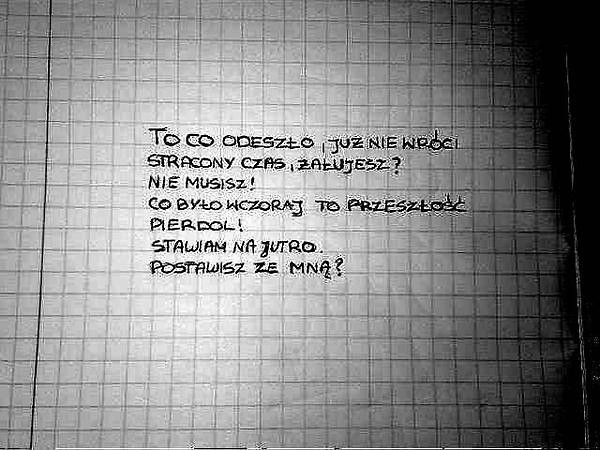 TO CO ODESZŁO, JUŻ NIE WRÓCI
STRACONY CZAS, ŻAŁUJESZ?
NIE MUSISZ!
CO BYŁO WCZORAJ TO PRZESZŁOŚĆ
PIERDOL!
STAWIAM NA JUTRO.
POSTAWISZ ZE MNĄ?